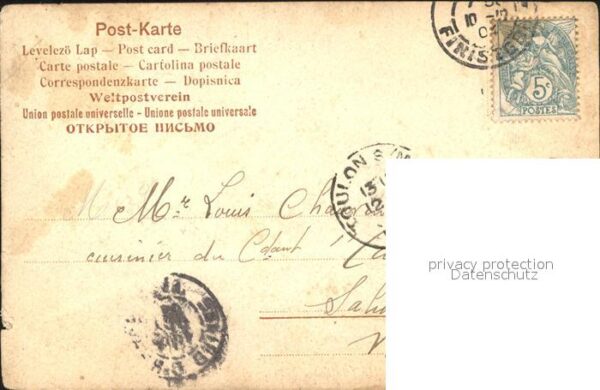 Post-Karte
Levelező Lap — Post card — Briefkaart
Carte postale — Cartolina postale
Correspondenzkarte — Dopisnica
Weltpostverein
Union postale universelle - Unione postale universale
ОТКРЫТОЕ ПИСЬМО
FINISTERE
5c
POSTES
TOULON S/M
Mr Louis
cuisinier du Cdant
privacy protection
Datenschutz